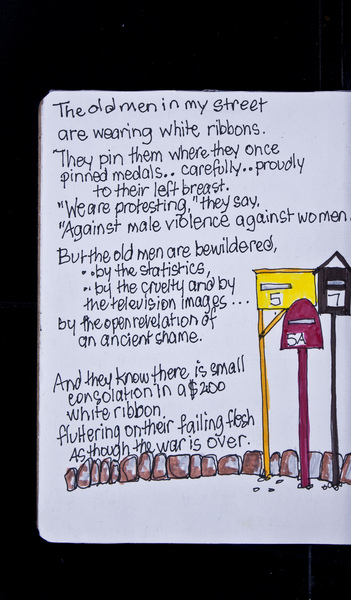 The old men in my street
are wearing white ribbons.
They pin them where they once
pinned medals.. carefully.. proudly
to their left breast.
"We are protesting," they say,
"Against male violence against women.
But the old men are bewildered,
..by the statistics,
..by the cruelty and by
the television images...
by the open revelation of
an ancient shame.
And they know there is small
consolation in a $2.00
white ribbon.
fluttering on their failing flesh
As though the war is over.
5
5A
7